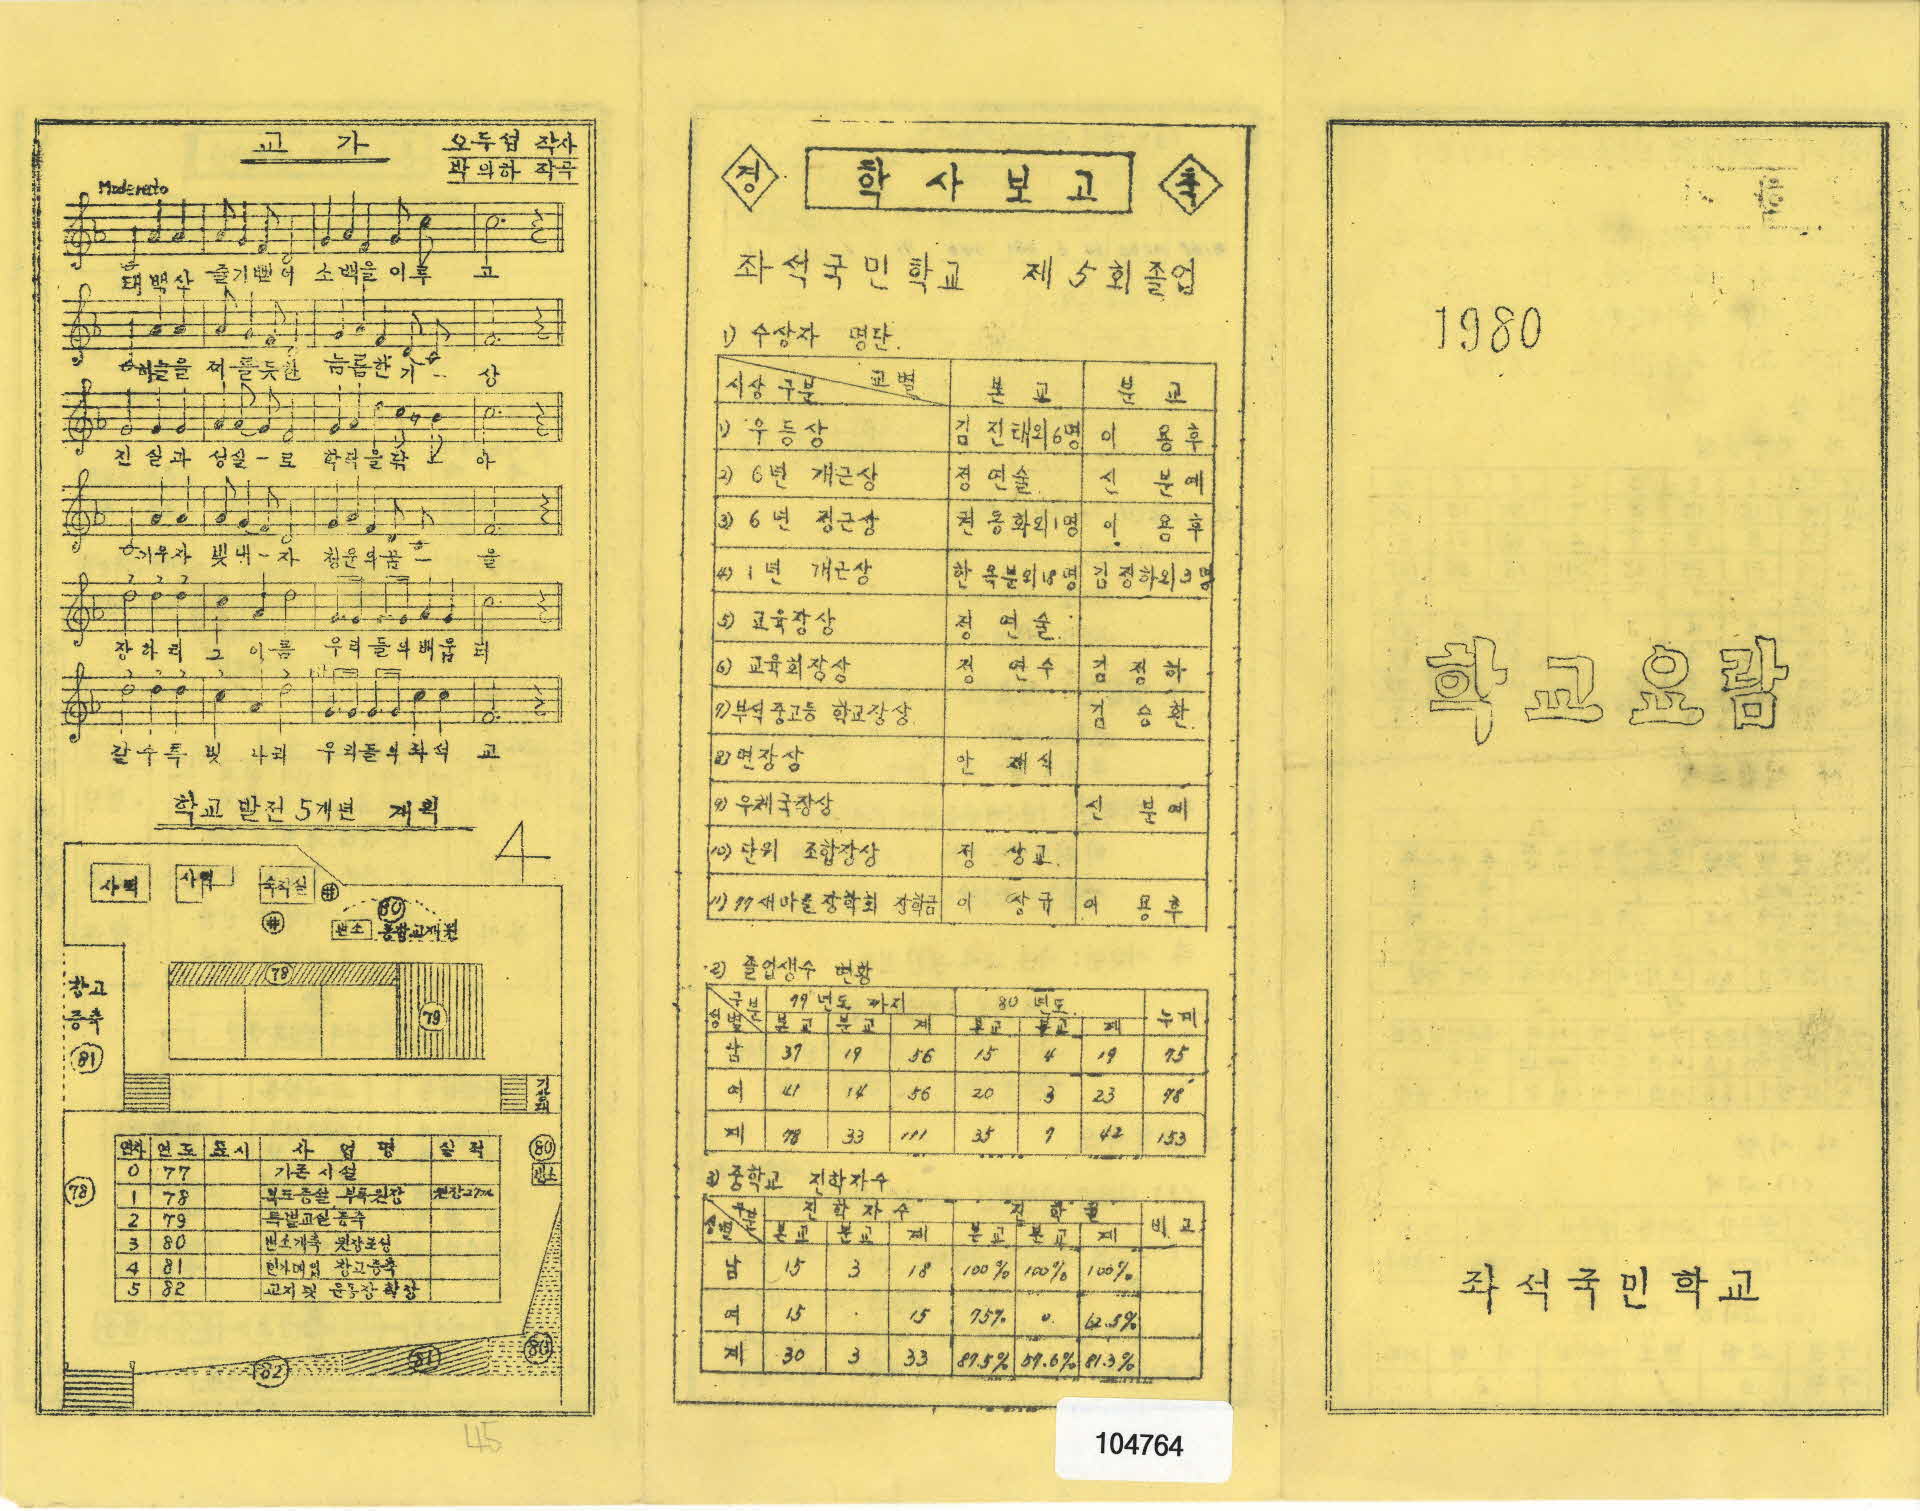 교 가
오두섭 작사
박의하 작곡
Moderato
태백산 줄기뻗어 소백을 이루 고
하늘을 찌를듯한 늠름한 기 - 상
진실과 성실 - 로 학덕을 닦 - 아
키우자 빛내 - 자 청운의 꿈 - 을
장하리 그 이름 우리들의 배움터
갈수록 빛 나리 우리들의 좌석 교
학교 발전 5개년 계획
4
사택 사택 숙직실
80
변소 통합교재원
78
79
창고
증축
81
연차 연도 표시 사업명 실적
0 77 기존시설
1 78 복도증설 부록원장
2 79 특별교실증축
3 80 변소개축 원장조성
4 81 창고증축
5 82 교지 및 운동장 확장
80
변소
78
82 81 80
45
경 학사보고 축
좌석국민학교 제5회졸업
1) 수상자 명단.
시상구분 교별 본교 분교
1) 우등상 김진태외6명 이용후
2) 6년 개근상 정연술 신분예
3) 6년 정근상 전동화외1명 이용후
4) 1년 개근상 한옥분외18명 김정하외3명
5) 교육장상 정연술
6) 교육회장상 정연수 김정하
7) 부석중고등학교장상 김승환
8) 면장상 안재식
9) 우체국장상 신분예
10) 단위 조합장상 정상교
11) 77새마을장학회 장학금 이상규 이용후
2) 졸업생수 현황
구분 79년도 까지 80년도 누계
성별 본교 분교 계 본교 분교 계
남 37 19 56 15 4 19 75
여 41 14 56 20 3 23 78
계 78 33 111 35 7 42 153
3) 중학교 진학자수
구분 진학자수 진학률 비고
성별 본교 분교 계 본교 분교 계
남 15 3 18 100% 100% 100%
여 15 · 15 75% 0. 62.5%
계 30 3 33 87.5% 57.6% 81.3%
104764
1980
학교요람
좌석국민학교